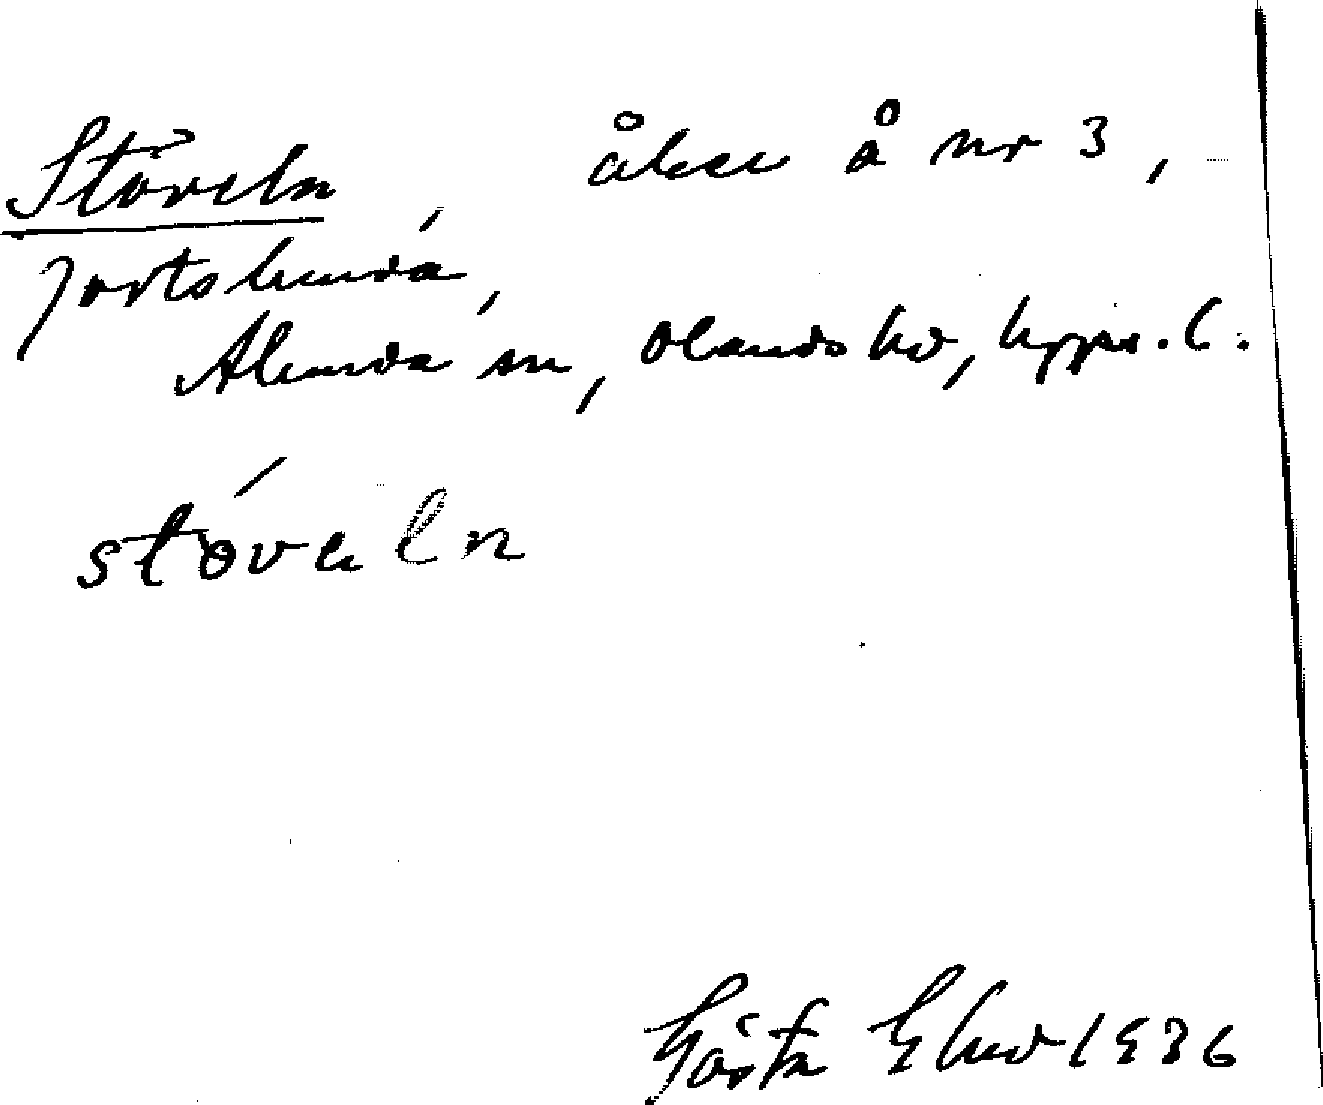 Stöveln, åker å nr 3,
Jortsbunda,
Alunda sn, Olands hd, Upps. l.
stöveln
Gösta Ekud 1936